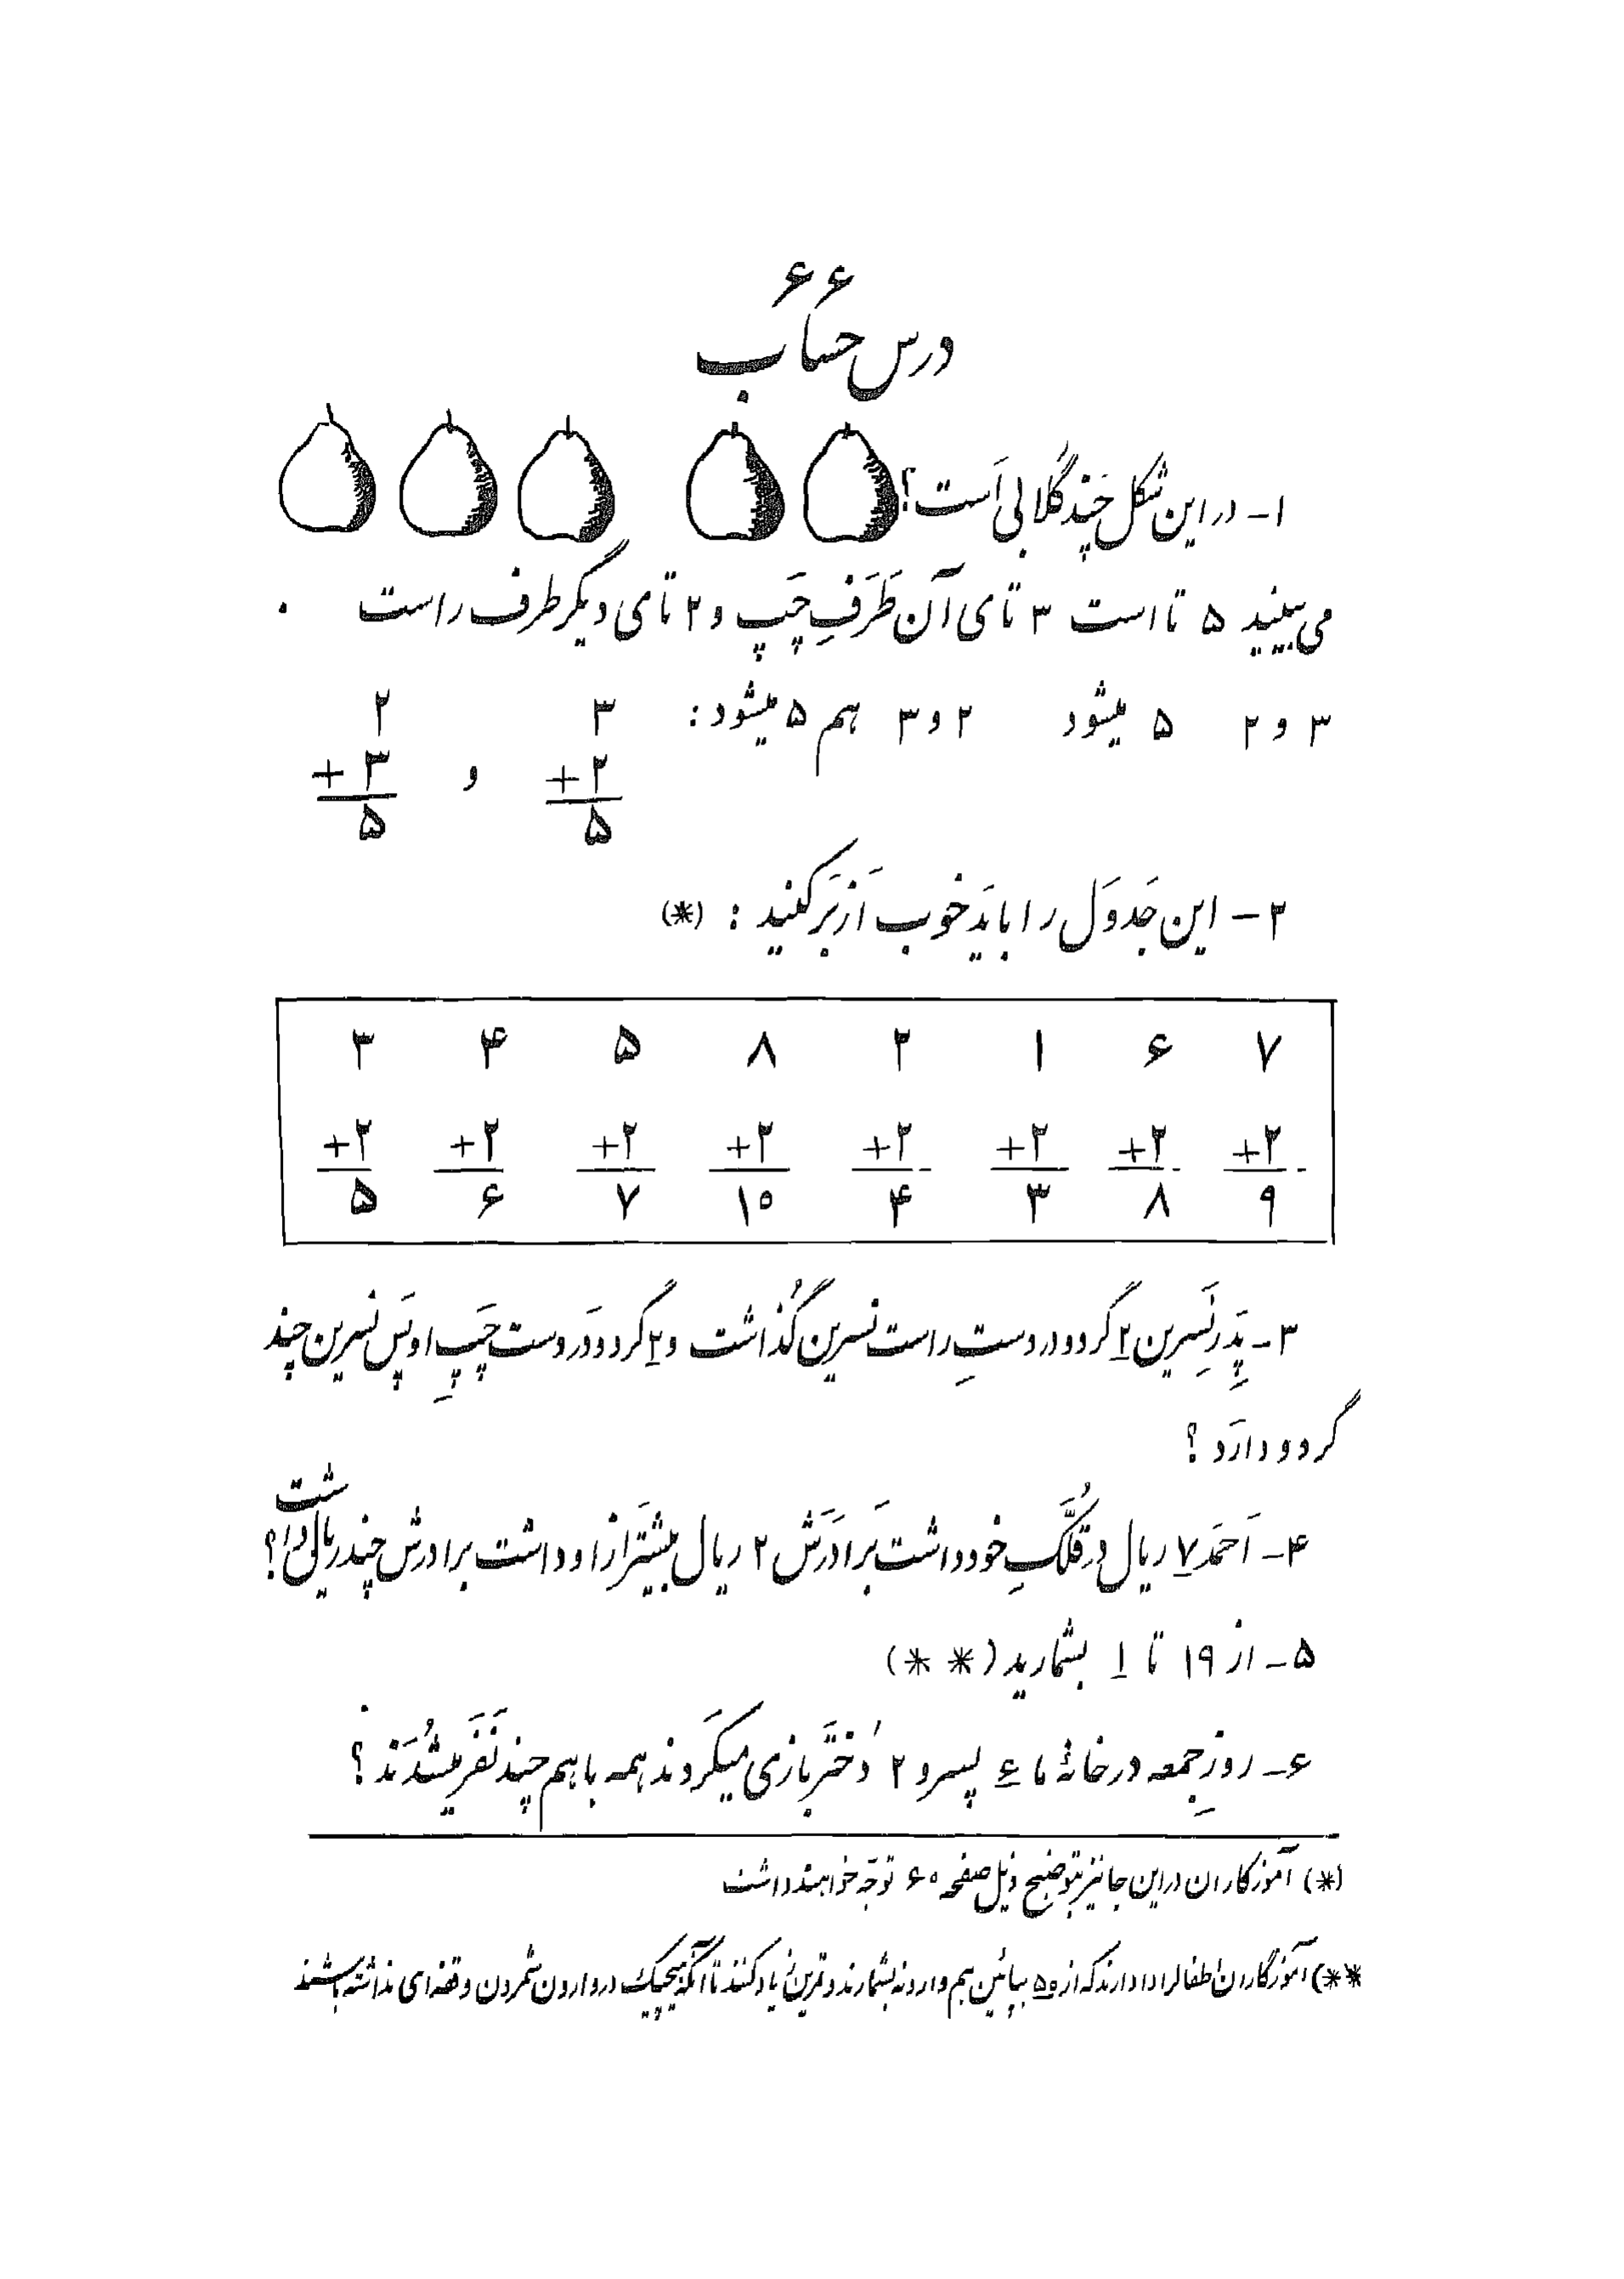 ۶۶
درس حساب
۱- در این شکل چَند گُلابی اَست؟
می بینید ۵ تا است ۳ تای آن طَرَفِ چَپ و ۲ تای دیگر طرف راست .
۳ و ۲ ۵ میشود ۲ و ۳ هم ۵ میشود:
۳ ۲
+۲ و +۳
۵ ۵
۲- این جَدوَل را بایَد خوب اَز بَر کنید : (*)
۷ ۶ ۱ ۲ ۸ ۵ ۴ ۳
+۲ +۲ +۲ +۲ +۲ +۲ +۲ +۲
۹ ۸ ۳ ۴ ۱۰ ۷ ۶ ۵
۳- پِدَرِ نَسرین ۲ گردو در دستِ راست نسرین گُذاشت و ۲ گردو دَر دست چَپِ او پَس نسرین چند
گردو دارَد ؟
۴- اَحمَد ۷ ریال در قُلَّکِ خود داشت بَرادَرَش ۲ ریال بیشتَر از او داشت برادرش چند ریال داشت؟
۵- از ۱۹ تا ۱ بشمارید (**)
۶- روزِ جمعه در خانهٔ ما ۶ پسر و ۲ دُختَر بازی میکَردند همه با هم چند نَفَر میشُدَند ؟
(*) آموزگاران در این جا نیز بتوضیح ذیل صفحه ۶۰ توجّه خواهند داشت
**) آموزگاران اطفال را وادارند که از ۵۰ بپائین هم وارونه بشمارند و تمرین را زیاد کنند تا آنکه هیچیک در وارون شمردن وقفه‌ای نداشته باشند